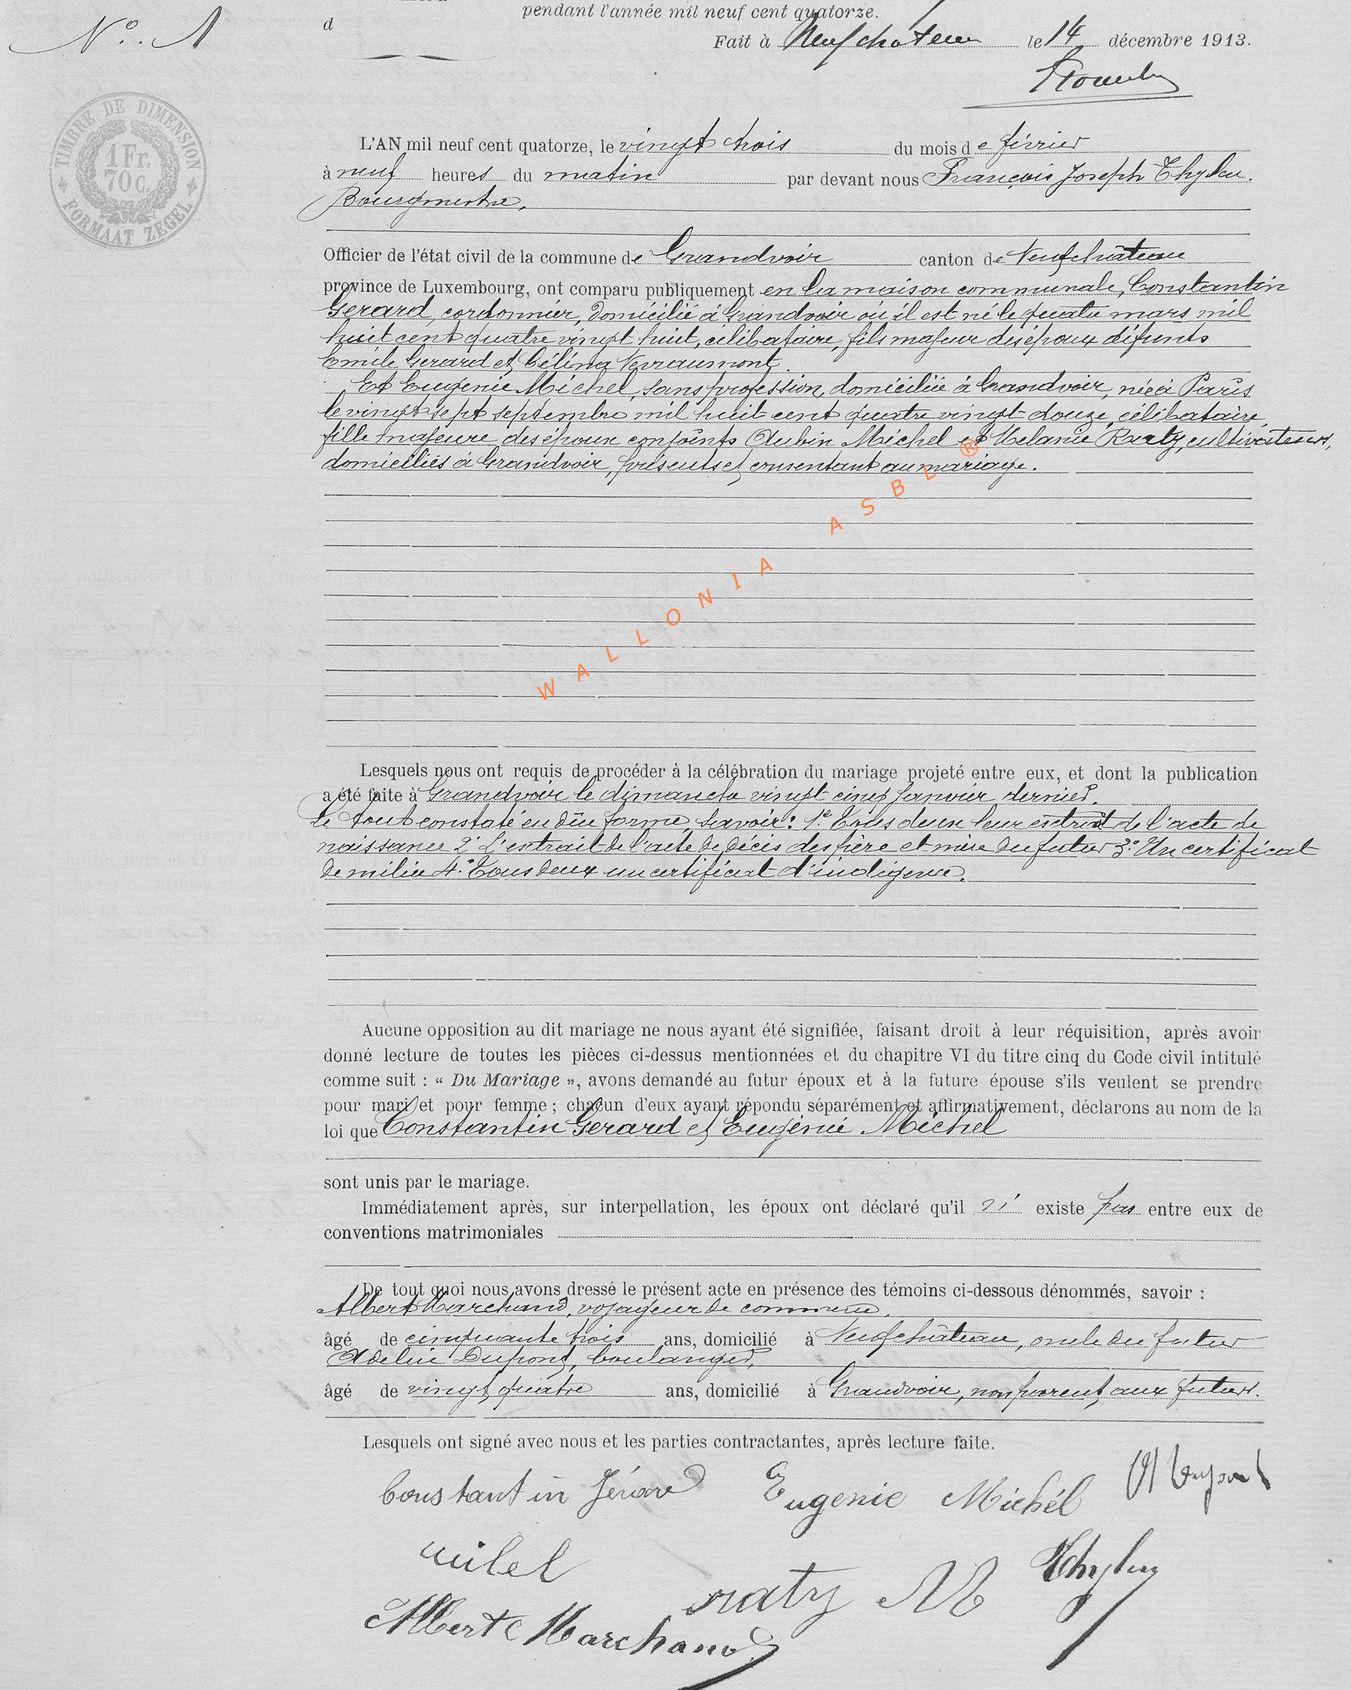 pendant l'année mil neuf cent quatorze.
d
Nº. 1
Fait à Neufchateau le 14 décembre 1913.
TIMBRE DE DIMENSION
1 Fr.
70 C.
FORMAAT ZEGEL
L'AN mil neuf cent quatorze, le vingt trois du mois de février
à neuf heures du matin par devant nous François Joseph
Bourgmestre,
Officier de l'état civil de la commune de Grandvoir canton de Neufchâteau
province de Luxembourg, ont comparu publiquement en la maison communale, Constantin
Gerard, cordonnier, domicilié à Grandvoir où il est né le quatre mars mil
huit cent quatre vingt huit, célibataire, fils majeur des époux défunts
Emile Gerard et Célina Nevraumont.
Et Eugenie Michel, sans profession, domiciliée à Grandvoir, née à Paris
le vingt sept septembre mil huit cent quatre vingt douze, célibataire,
fille majeure des époux conjoints Aubin Michel et Melanie Raty, cultivateurs,
domiciliés à Grandvoir, présents et consentant au mariage.
WALLONIA ASBL ®
Lesquels nous ont requis de procéder à la célébration du mariage projeté entre eux, et dont la publication
a été faite à Grandvoir le dimanche vingt cinq Janvier dernier.
Le tout constaté en due forme, savoir: 1º Tous deux leur extrait de l'acte de
naissance 2º L'extrait de l'acte de décès des père et mère du futur 3º Un certificat
de milice 4º Tous deux un certificat d'indigence.
Aucune opposition au dit mariage ne nous ayant été signifiée, faisant droit à leur réquisition, après avoir
donné lecture de toutes les pièces ci-dessus mentionnées et du chapitre VI du titre cinq du Code civil intitulé
comme suit : « Du Mariage », avons demandé au futur époux et à la future épouse s'ils veulent se prendre
pour mari et pour femme ; chacun d'eux ayant répondu séparément et affirmativement, déclarons au nom de la
loi que Constantin Gerard et Eugénie Michel
sont unis par le mariage.
Immédiatement après, sur interpellation, les époux ont déclaré qu'il n' existe pas entre eux de
conventions matrimoniales
De tout quoi nous avons dressé le présent acte en présence des témoins ci-dessous dénommés, savoir :
Albert Marchand, voyageur de commerce,
âgé de cinquante trois ans, domicilié à Neufchâteau, oncle du futur
Adelin Dupont, boulanger,
âgé de vingt quatre ans, domicilié à Grandvoir, non parent aux futurs.
Lesquels ont signé avec nous et les parties contractantes, après lecture faite.
Constantin Jérard Eugenie Michél
raty M
Albert Marchand